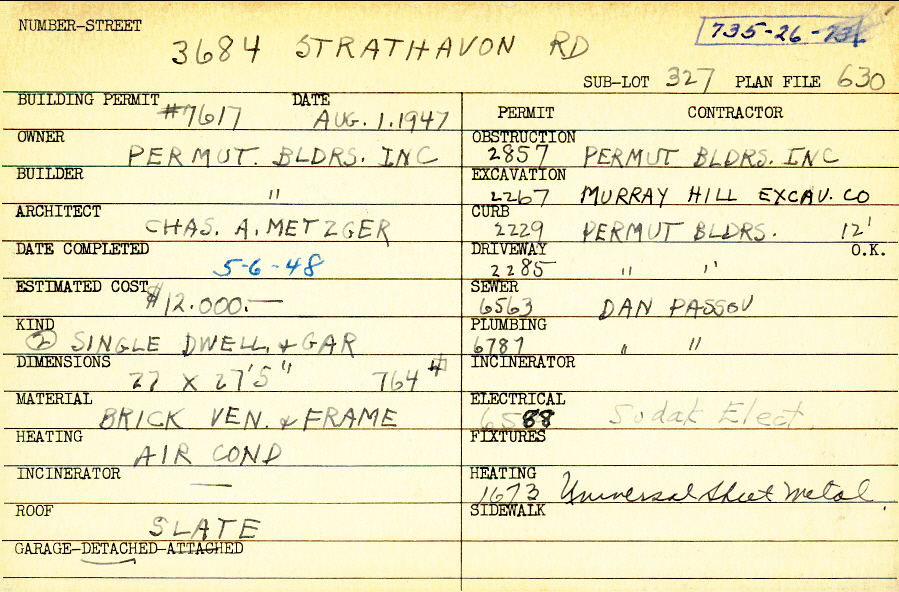 NUMBER-STREET
3684 STRATHAVON RD
735-26-
SUB-LOT 327 PLAN FILE 630
BUILDING PERMIT #7617 DATE AUG. 1. 1947
OWNER PERMUT. BLDRS. INC
BUILDER "
ARCHITECT CHAS. A. METZGER
DATE COMPLETED 5-6-48
ESTIMATED COST $12.000.—
KIND
② SINGLE DWELL. & GAR
DIMENSIONS 27 X 27'5" 764 #
MATERIAL BRICK VEN. & FRAME
HEATING AIR COND
INCINERATOR —
ROOF SLATE
GARAGE-DETACHED-ATTACHED
PERMIT CONTRACTOR
OBSTRUCTION
2857 PERMUT BLDRS. INC
EXCAVATION
2267 MURRAY HILL EXCAV. CO
CURB
2229 PERMUT BLDRS. 12'
DRIVEWAY O.K.
2285 " "
SEWER
6563 DAN PASSOV
PLUMBING
6787 " "
INCINERATOR
ELECTRICAL
6588 Sudak Elect.
FIXTURES
HEATING
1673 Universal Sheet Metal
SIDEWALK